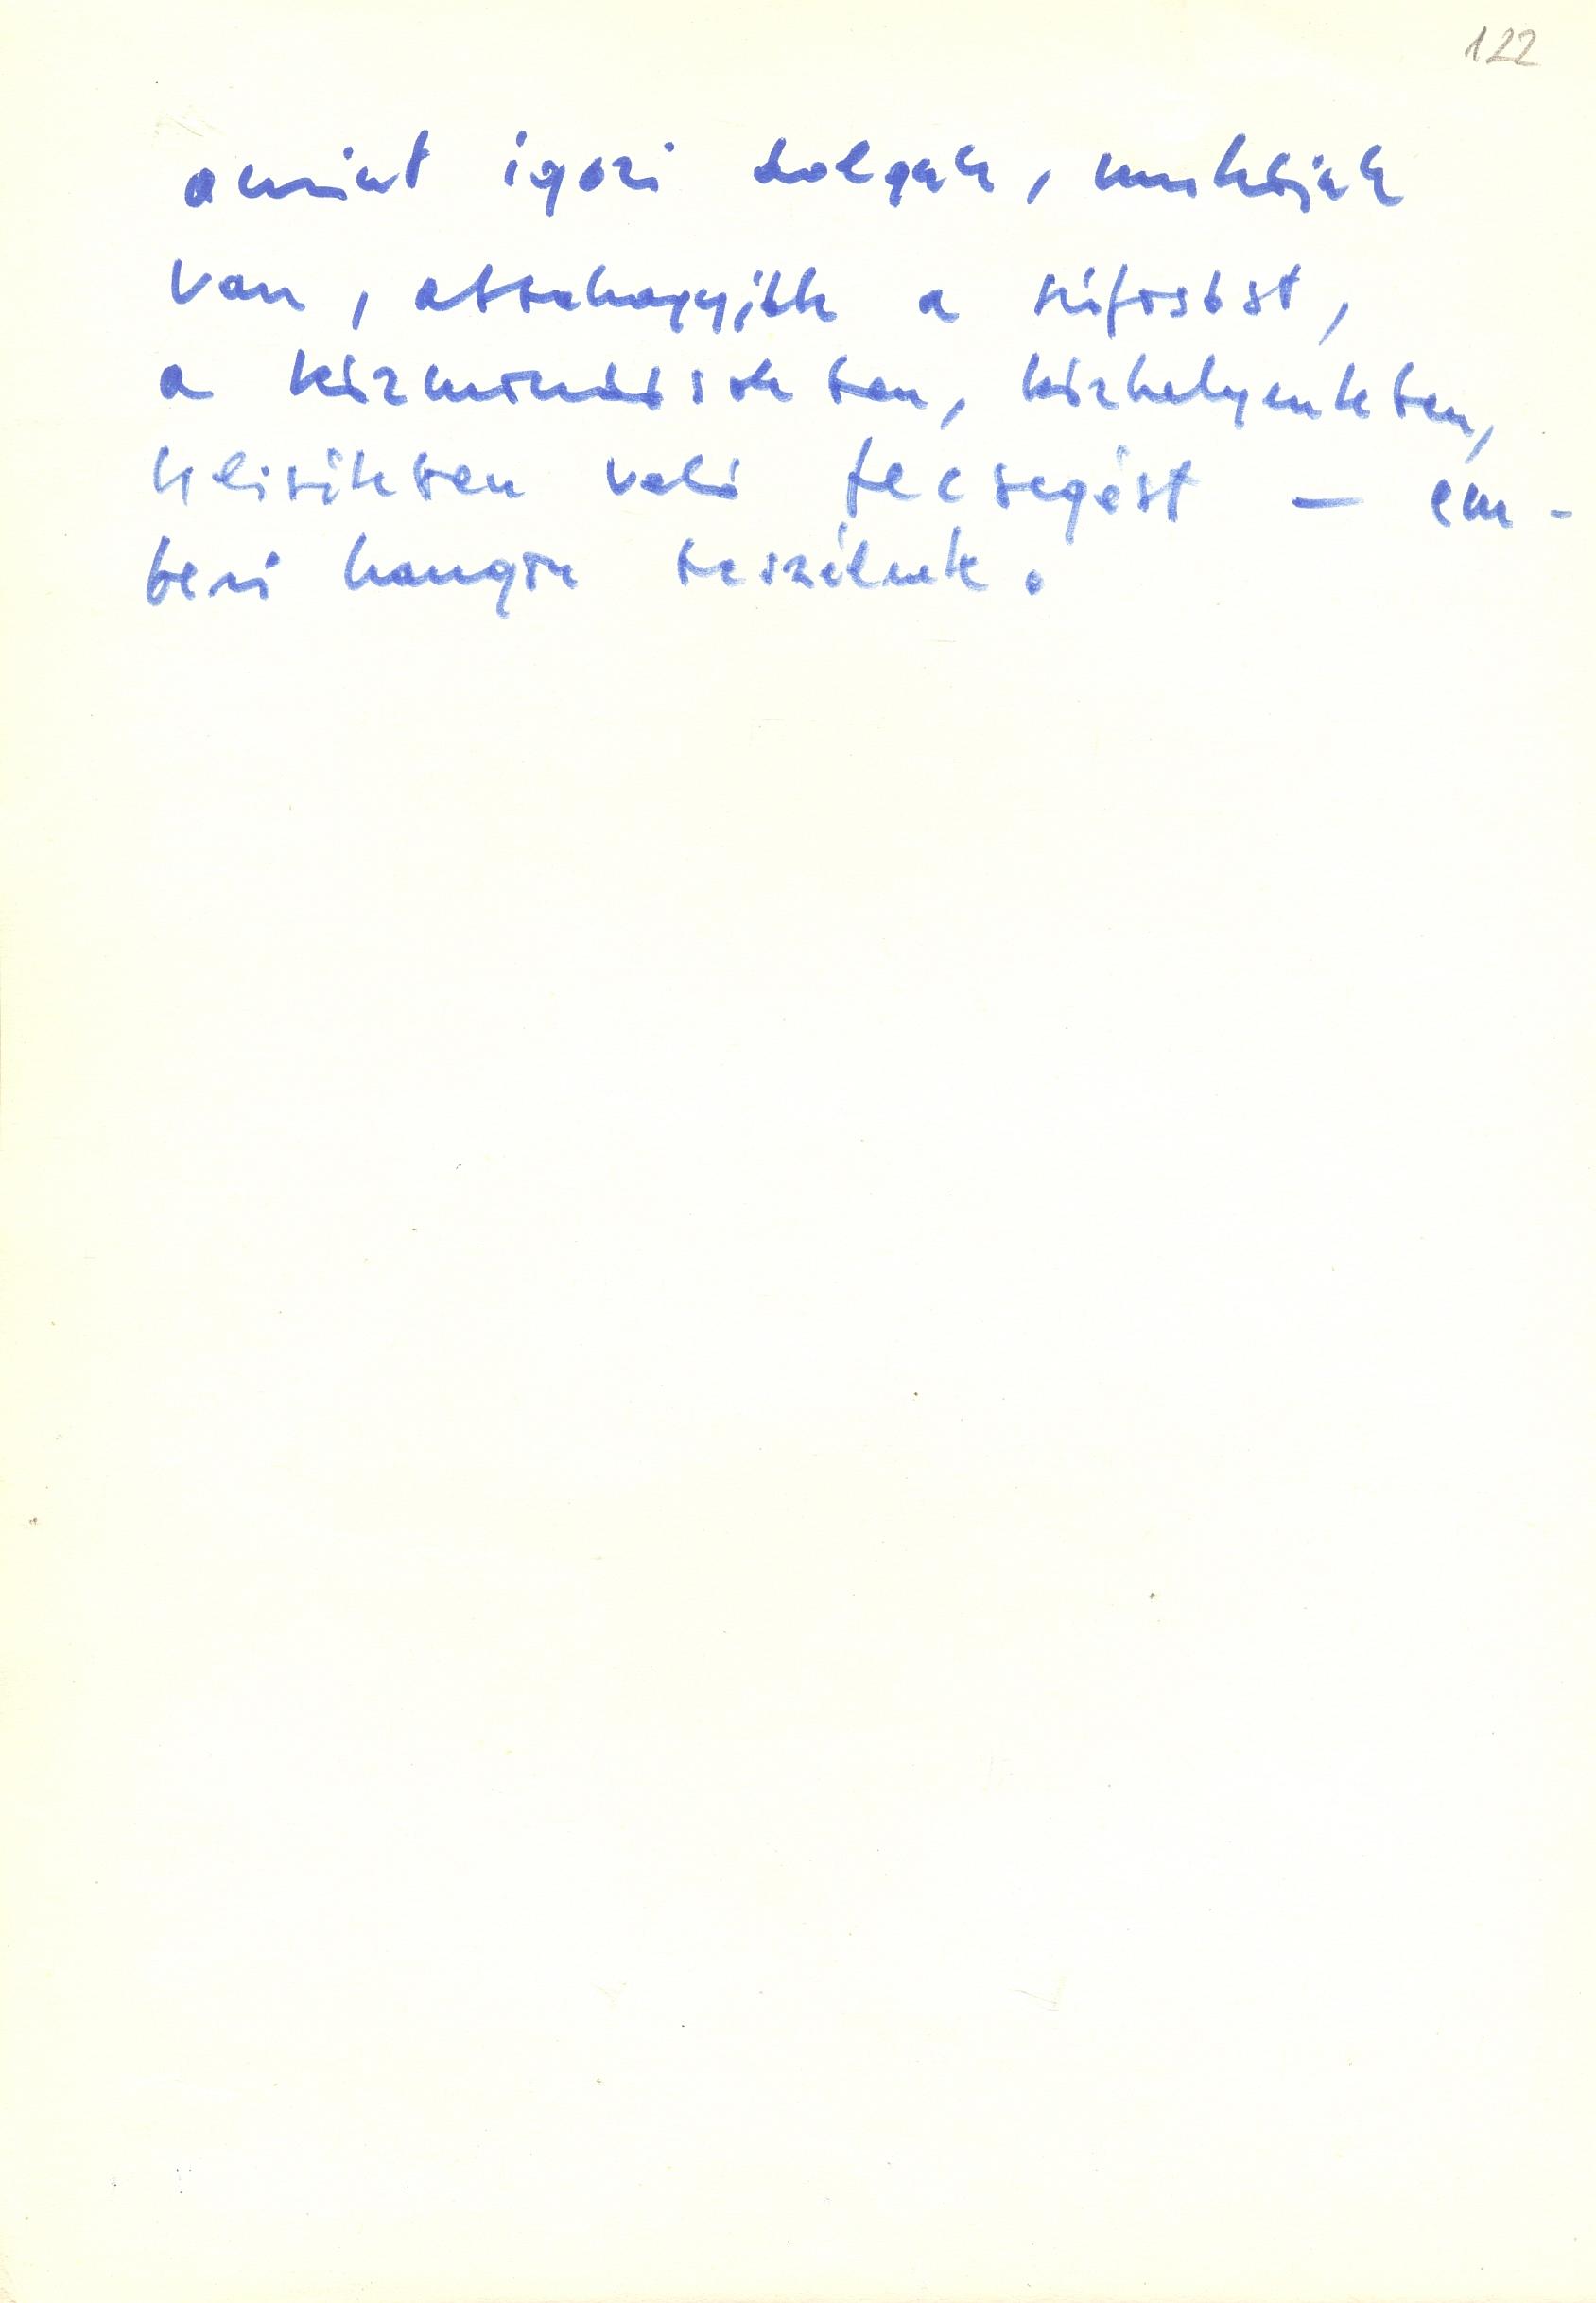 122
amint igazi dolguk, munkájuk
van, abbahagyják a
a közmondásokban, közhelyenkben,
klisékben való fecsegést – em-
beri hangon beszélnek.